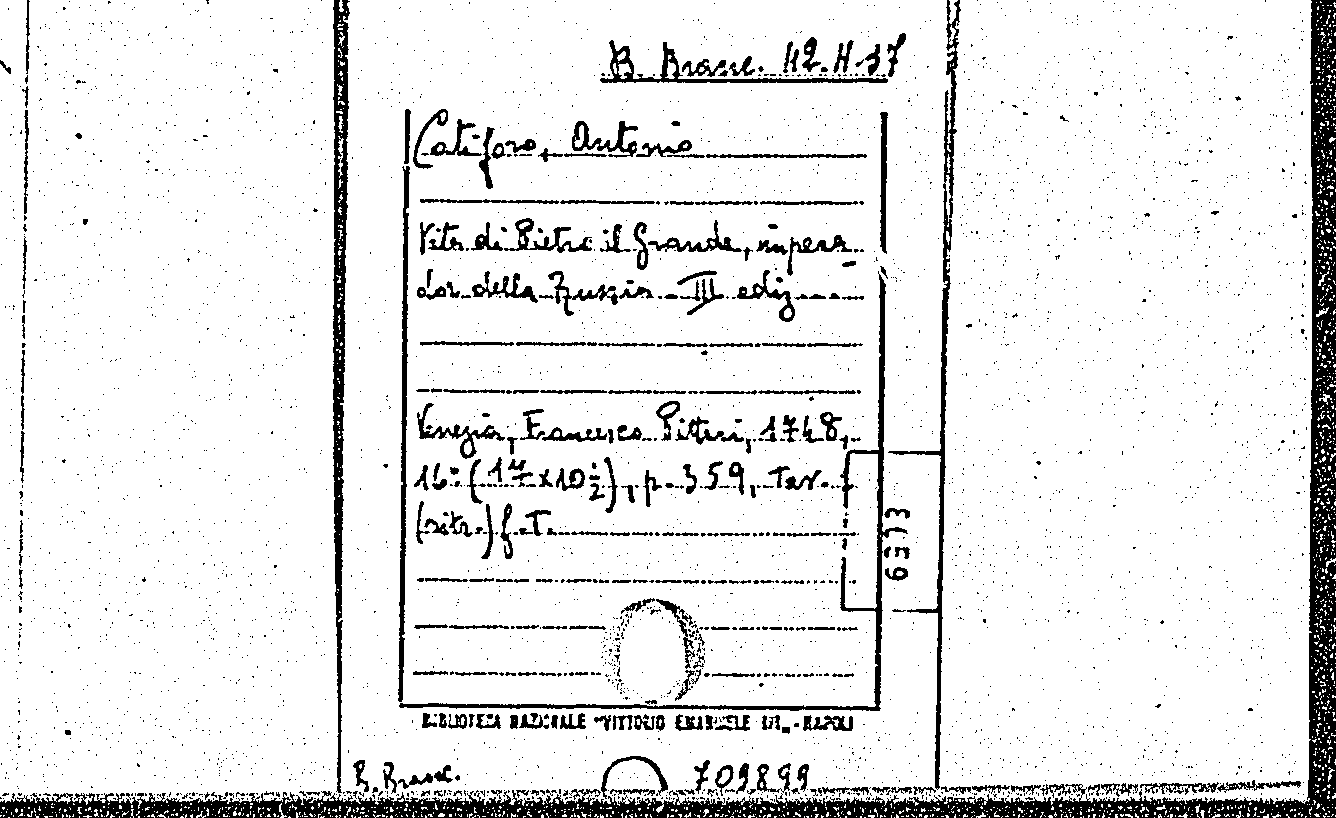 B. Branc. 112.H.37
Catiforo, Antonio
Vita di Pietro il Grande, impera_
dor della Russia. - III ediz. ---
Venezia, Francesco Pitteri, 1748,
16° (17x10½), p. 359, Tav. 1
(ritr.) f.T.
BIBLIOTECA NAZIONALE "VITTORIO EMANUELE III„ - NAPOLI
B. Branc. 709899